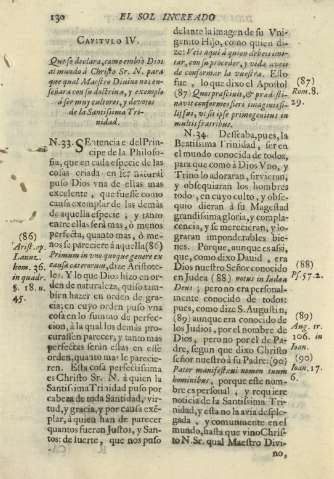 130 EL SOL INCREADO
CAPITULO IV.
Que se declara, como embiò Dios
al mundo à Christo Sr. N. para
que qual Maestro Divino nos en-
señara con su doctrina, y exemplo
à ser muy cultores, y devotos
de la Santissima Tri-
nidad.
N. 33. SEntencia es del Prin-
cipe de la Philoso-
fia, que en cada especie de las
cosas criada en ser natural
puso Dios vna de ellas mas
excelente, que fuesse como
causa exemplar de las demàs
de aquella especie, y tanto
entre ellas será mas, ò menos
perfecta, quanto mas, ò me-
nos se pareciere à aquella (86)
Primum in vno quoque genere ex
Causa caterorum, dixo Aristote-
les. Y lo que Dios hizo en or-
den de naturaleza, quiso tam-
bien hazer en orden de gra-
cia; en cuyo orden puso vna
cosa en lo sumo de perfec-
cion, à la qual los demàs pro-
curassen parecer, y tanto mas
perfectas serán ellas en esse
orden, quanto mas le parecie-
ren. Esta cosa perfectissima
es Christo Sr. N. à quien la
Santissima Trinidad puso por
cabeza de toda Santidad, vir-
tud, y gracia, y por causa exem-
plar, à quien han de parecer
quantos fueren Justos, y San-
tos: de suerte, que nos puso
(86)
Aris. ap.
Lanuz.
hom. 26.
in quadr.
§. 18. n.
45.
delante la imagen de su Vni-
genito Hijo, como quien di-
ze: Veis aquì à quien deveis imi-
tar, con su proceder, y vida aveis
de conformar la vuestra. Esto
fue, lo que dixo el Apostol
(87) Quos praescivit, & praedesti-
navit conformes fieri imaginis fi-
lij sui, vt sit ipse primogenitus in
multis fratribus.
N. 34. Deseaba, pues, la
Beatissima Trinidad, ser en
el mundo conocida de todos,
para que como à Dios Vno, y
Trino lo adoraran, sirvieran,
y obsequiaran los hombres
todos, en cuyo culto, y obse-
quio dieran à su Magestad
grandissima gloria, y compla-
cencia, y se merecieran, y lo-
graran imponderables bie-
nes. Porque, aunque es assi,
que, como dixo David, era
Dios nuestro Señor conocido
en Judea (88) notus in Iudaea
Deus; pero no era personal-
mente conocido de todos:
pues, como dize S. Augustin,
(89) aunque era conocido de
los Judios, por el nombre de
Dios, pero no por el de Pa-
dre, segun que dixo Christo
señor nuestro à su Padre: (90)
Pater manifestavi nomen tuum
hominibus, porque este nom-
bre es personal, y requiere
noticia de la Santissima Tri-
nidad, y esta no la avia desple-
gada, y comunmente en el
mundo, hasta que vino Chris-
to N. Sr. qual Maestro Divi-
no,
(87)
Rom. 8.
29.
(88)
Ps. 57. 2.
(89)
Aug. tr.
106. in
Ioan.
(90)
Ioan. 17.
6.